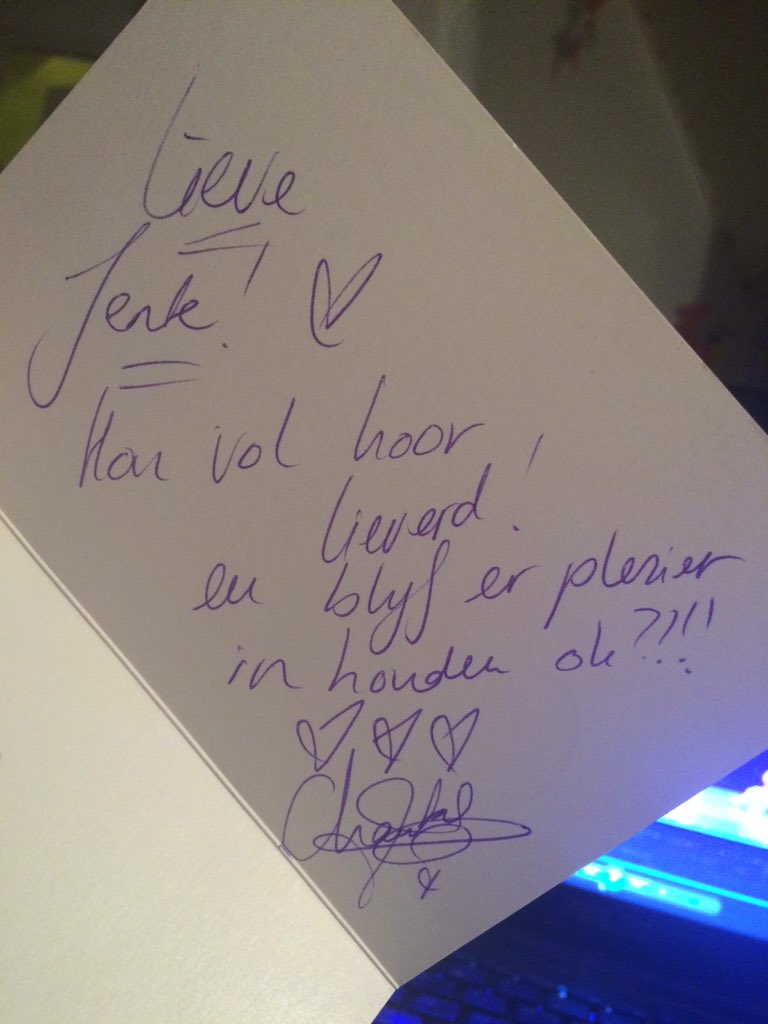 Lieve
Jenk!
Hou vol hoor
lieverd!
en blijf er plezier
in houden ok??!!
Chantal
x